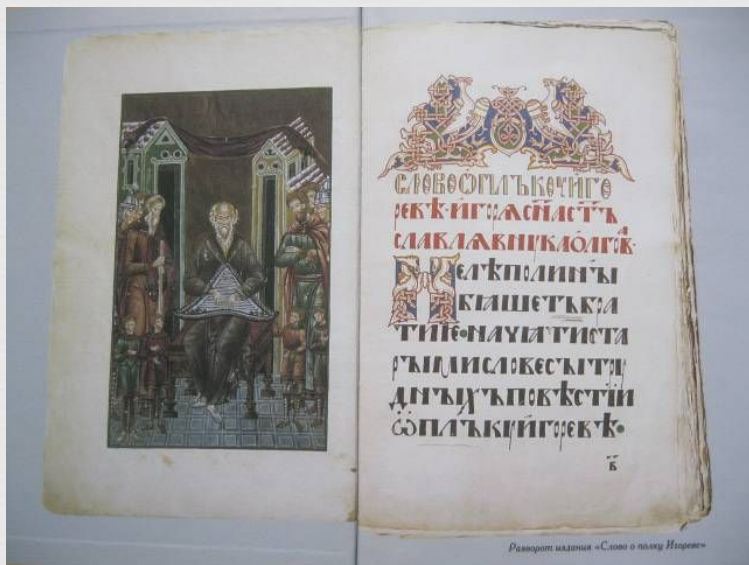 СЛОВООПЛЪКꙊИГО
РЕВѢ·ИГОРѦСН҃АСТЪ
СЛАВЛѦВНꙊКАОЛГОВ·
НЕЛѢПОЛИНЫ
БѦШЕТЬБРА
ТИѤ·НАЧѦТИСТА
РЫМИСЛОВЕСЫТРꙊ
ДНЫХЪПОВѢСТІИ
ѾПЛЪКꙊИГОРЕВѢ·
в҃
Разворот издания «Слово о полку Игореве»